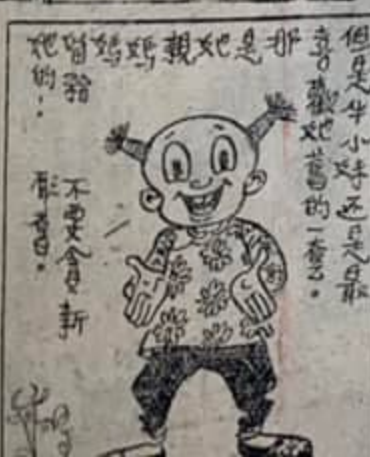 但是牛小妹还是最
喜歡她舊的一套
那是她親媽媽留給
她的.
不要貪新